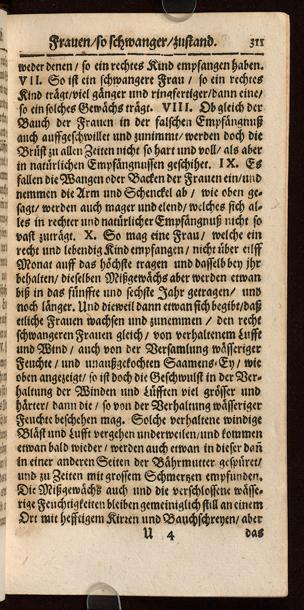 Frauen/ so schwanger/ zustand. 311
weder denen/ so ein rechtes Kind empfangen haben.
VII. So ist ein schwangere Frau/ so ein rechtes
Kind trägt/ viel gänger und ringfertiger/ dann eine/
so ein solches Gewächs trägt. VIII. Ob gleich der
Bauch der Frauen in der falschen Empfängnuß
auch auffgeschwillet und zunimmt/ werden doch die
Brüst zu allen Zeiten nicht so hart und voll/ als aber
in natürlichen Empfängnussen geschihet. IX. Es
fallen die Wangen oder Backen der Frauen ein/ und
nemmen die Arm und Schenckel ab/ wie oben ge-
sagt/ werden auch mager und elend/ welches sich al-
les in rechter und natürlicher Empfängnuß nicht so
vast zuträgt. X. So mag eine Frau/ welche ein
recht und lebendig Kind empfangen/ nicht über eilff
Monat auff das höchste tragen und dasselb bey ihr
behalten/ dieselben Mißgewächs aber werden etwan
biß in das fünffte und sechste Jahr getragen/ und
noch länger. Und dieweil dann etwan sich begibt/ daß
etliche Frauen wachsen und zunemmen/ den recht
schwangeren Frauen gleich/ von verhaltenem Lufft
und Wind/ auch von der Versamlung wässeriger
Feuchte/ und unaußgekochten Saamens-Ey/ wie
oben angezeigt/ so ist doch die Geschwulst in der Ver-
haltung der Winden und Lüfften viel grösser und
härter/ dann die/ so von der Verhaltung wässeriger
Feuchte beschehen mag. Solche verhaltene windige
Bläst und Lufft vergehen underweilen/ und kommen
etwan bald wieder/ werden auch etwan in dieser dañ
in einer anderen Seiten der Bährmutter gespüret/
und zu Zeiten mit grossem Schmertzen empfunden.
Die Mißgewächs auch und die verschlossene wässe-
rige Feuchtigkeiten bleiben gemeiniglich still an einem
Ort mit hefftigem Kirren und Bauchschreyen/ aber
U 4 das